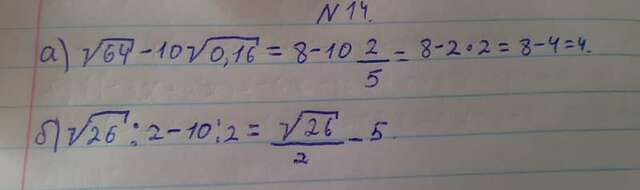 N 14.
а) √64 - 10√0,16 = 8 - 10 2/5 = 8 - 2 • 2 = 8 - 4 = 4.
б) √26 : 2 - 10 : 2 = √26/2 - 5